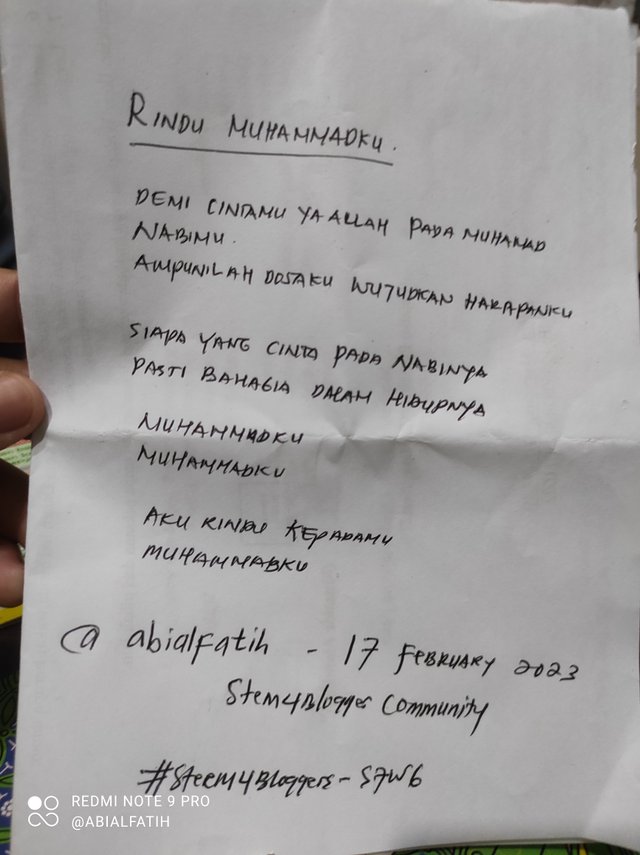 RINDU MUHAMMADKU.
DEMI CINTAMU YA ALLAH PADA MUHAMAD
NABIMU.
AMPUNILAH DOSAKU WUJUDKAN HARAPANKU
SIAPA YANG CINTA PADA NABINYA
PASTI BAHAGIA DALAM HIDUPNYA
MUHAMMADKU
MUHAMMADKU
AKU RINDU KEPADAMU
MUHAMMADKU
@ abialfatih - 17 FEBRUARY 2023
Stem4Blogger Community
#Steem4Bloggers-S7W6
REDMI NOTE 9 PRO
@ABIALFATIH